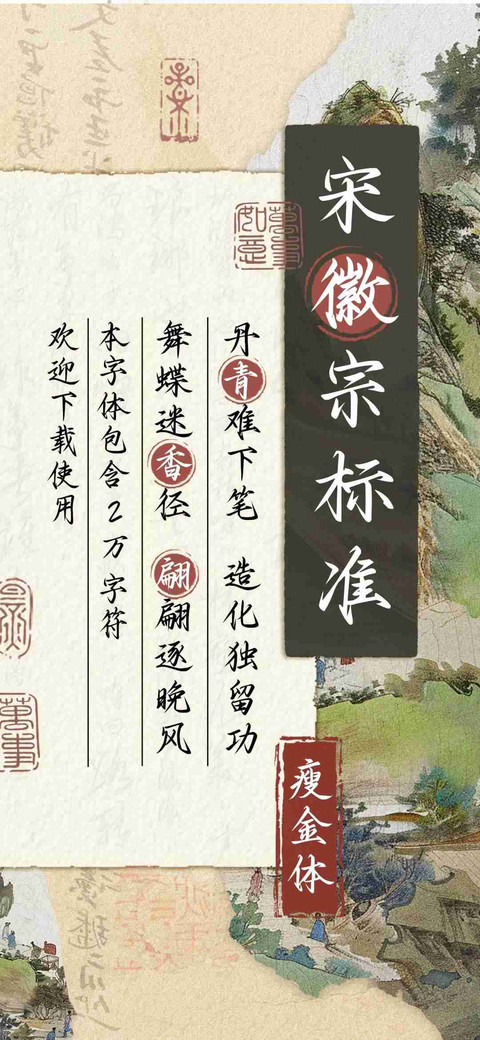 宋徽宗标准
瘦金体
丹青难下笔 造化独留功
舞蝶迷香径 翩翩逐晚风
本字体包含2万字符
欢迎下载使用
萬事如意
萬事